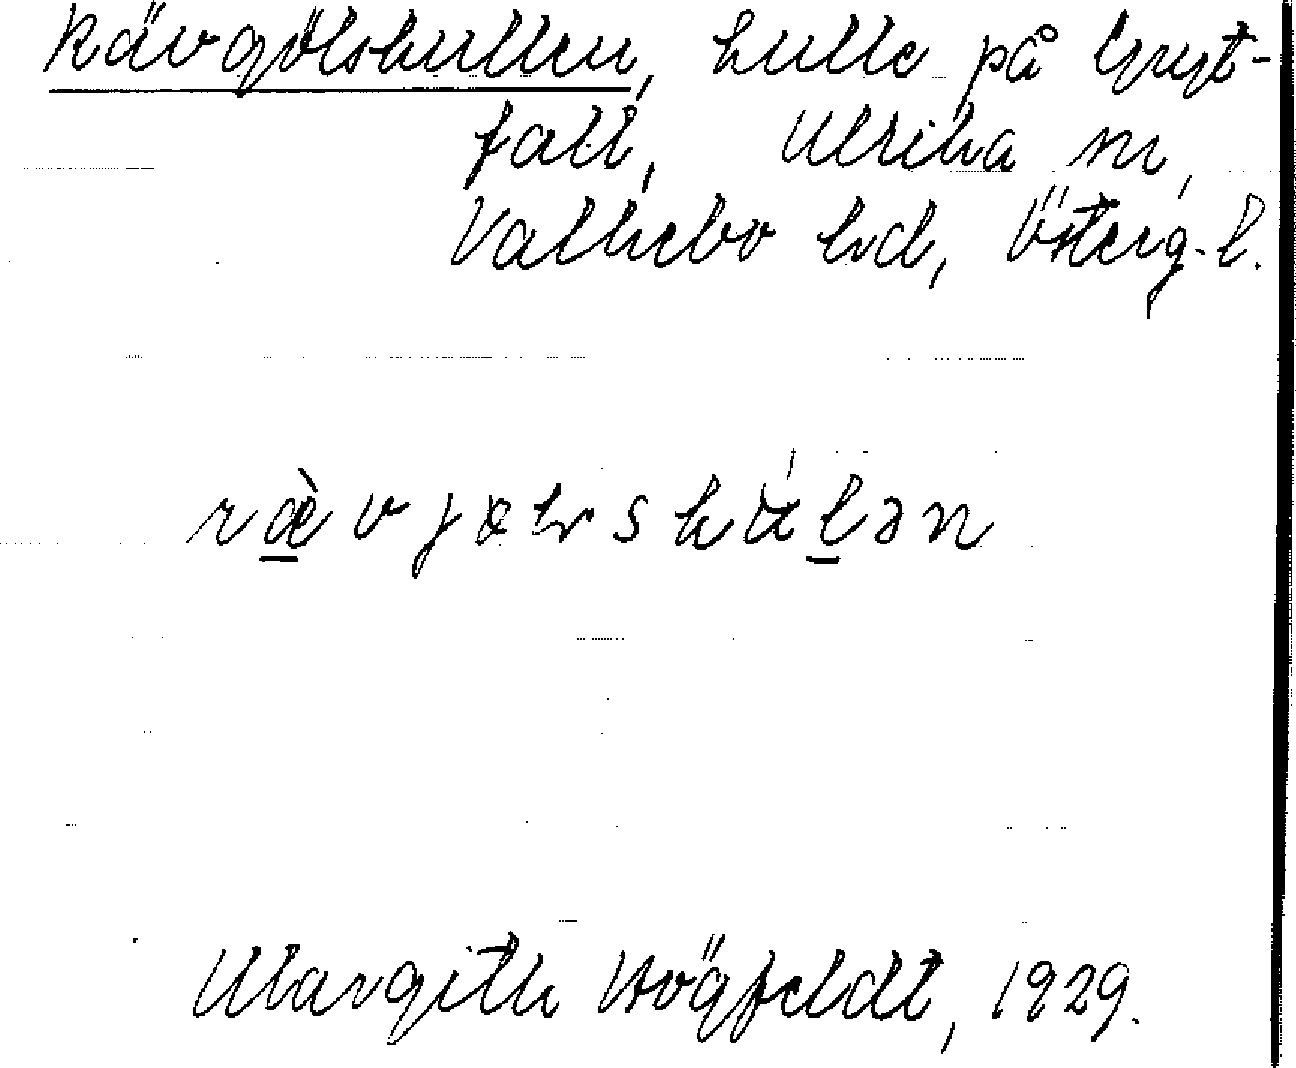 Rävgölskullen, kulle på Gryt-
fall, Ulrika sn,
Valkebo hd, Österg. l.
ræ̀vjœlskúlən
Margith Högfeldt, 1929.